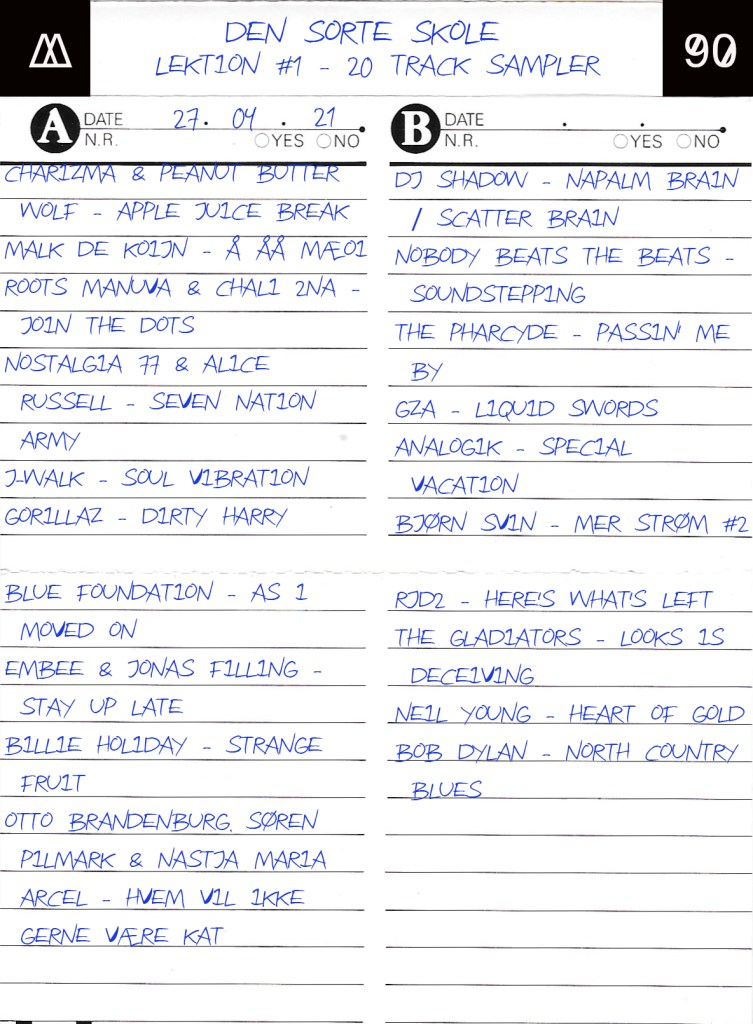 DEN SORTE SKOLE
LEKTION #1 - 20 TRACK SAMPLER
90
A DATE 27. 04. 21
N.R. YES NO
CHARIZMA & PEANUT BUTTER
WOLF - APPLE JUICE BREAK
MALK DE KOIJN - Å ÅÅ MÆOI
ROOTS MANUVA & CHALI 2NA -
JOIN THE DOTS
NOSTALGIA 77 & ALICE
RUSSELL - SEVEN NATION
ARMY
J-WALK - SOUL VIBRATION
GORILLAZ - DIRTY HARRY
BLUE FOUNDATION - AS I
MOVED ON
EMBEE & JONAS FILLING -
STAY UP LATE
BILLIE HOLIDAY - STRANGE
FRUIT
OTTO BRANDENBURG, SØREN
PILMARK & NASTJA MARIA
ARCEL - HVEM VIL IKKE
GERNE VÆRE KAT
B DATE . .
N.R. YES NO
DJ SHADOW - NAPALM BRAIN
/ SCATTER BRAIN
NOBODY BEATS THE BEATS -
SOUNDSTEPPING
THE PHARCYDE - PASSIN' ME
BY
GZA - LIQUID SWORDS
ANALOGIK - SPECIAL
VACATION
BJØRN SVIN - MER STRØM #2
RJD2 - HERE'S WHAT'S LEFT
THE GLADIATORS - LOOKS IS
DECEIVING
NEIL YOUNG - HEART OF GOLD
BOB DYLAN - NORTH COUNTRY
BLUES